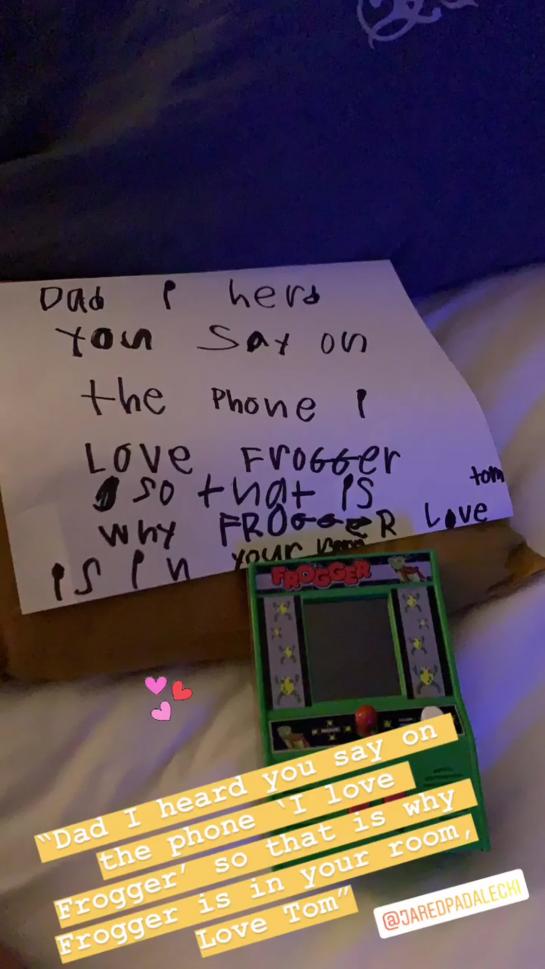 Dad I herd
you say on
the phone I
LOVE FROGGER
so that is
why FROGGER Love
tom
is in your
FROGGER
"Dad I heard you say on
the phone 'I love
Frogger' so that is why
Frogger is in your room,
Love Tom"
@JAREDPADALECKI